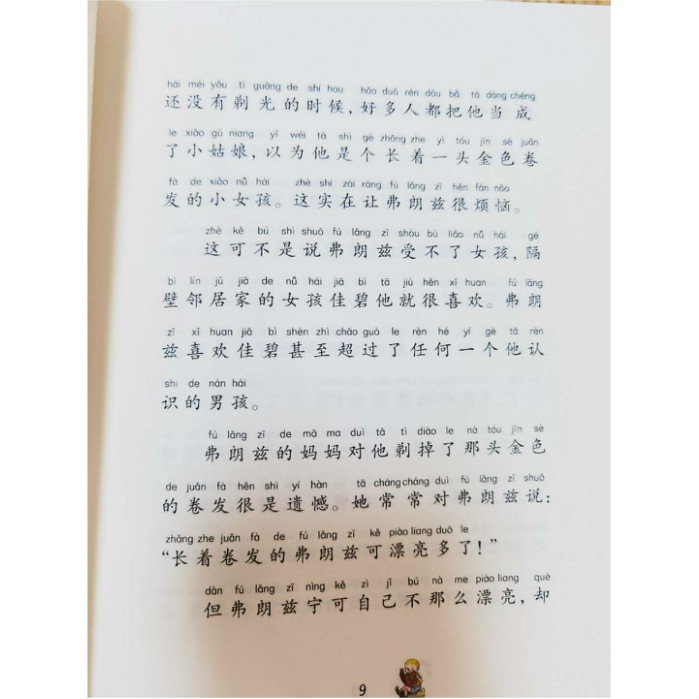 hái méi yǒu tì guāng de shí hou hǎo duō rén dōu bǎ tā dàng chéng
还没有剃光的时候,好多人都把他当成
le xiǎo gū niang yǐ wéi tā shì gè zhǎng zhe yì tóu jīn sè juǎn
了小姑娘,以为他是个长着一头金色卷
fà de xiǎo nǚ hái zhè shí zài ràng fú lǎng zī hěn fán nǎo
发的小女孩。这实在让弗朗兹很烦恼。
zhè kě bú shì shuō fú lǎng zī shòu bù liǎo nǚ hái gé
这可不是说弗朗兹受不了女孩,隔
bì lín jū jiā de nǚ hái jiā bì tā jiù hěn xǐ huan fú lǎng
壁邻居家的女孩佳碧他就很喜欢。弗朗
zī xǐ huan jiā bì shèn zhì chāo guò le rèn hé yí gè tā rèn
兹喜欢佳碧甚至超过了任何一个他认
shi de nán hái
识的男孩。
fú lǎng zī de mā ma duì tā tì diào le nà tóu jīn sè
弗朗兹的妈妈对他剃掉了那头金色
de juǎn fà hěn shì yí hàn tā cháng cháng duì fú lǎng zī shuō
的卷发很是遗憾。她常常对弗朗兹说:
zhǎng zhe juǎn fà de fú lǎng zī kě piào liang duō le
“长着卷发的弗朗兹可漂亮多了!”
dàn fú lǎng zī nìng kě zì jǐ bú nà me piào liang què
但弗朗兹宁可自己不那么漂亮,却
9